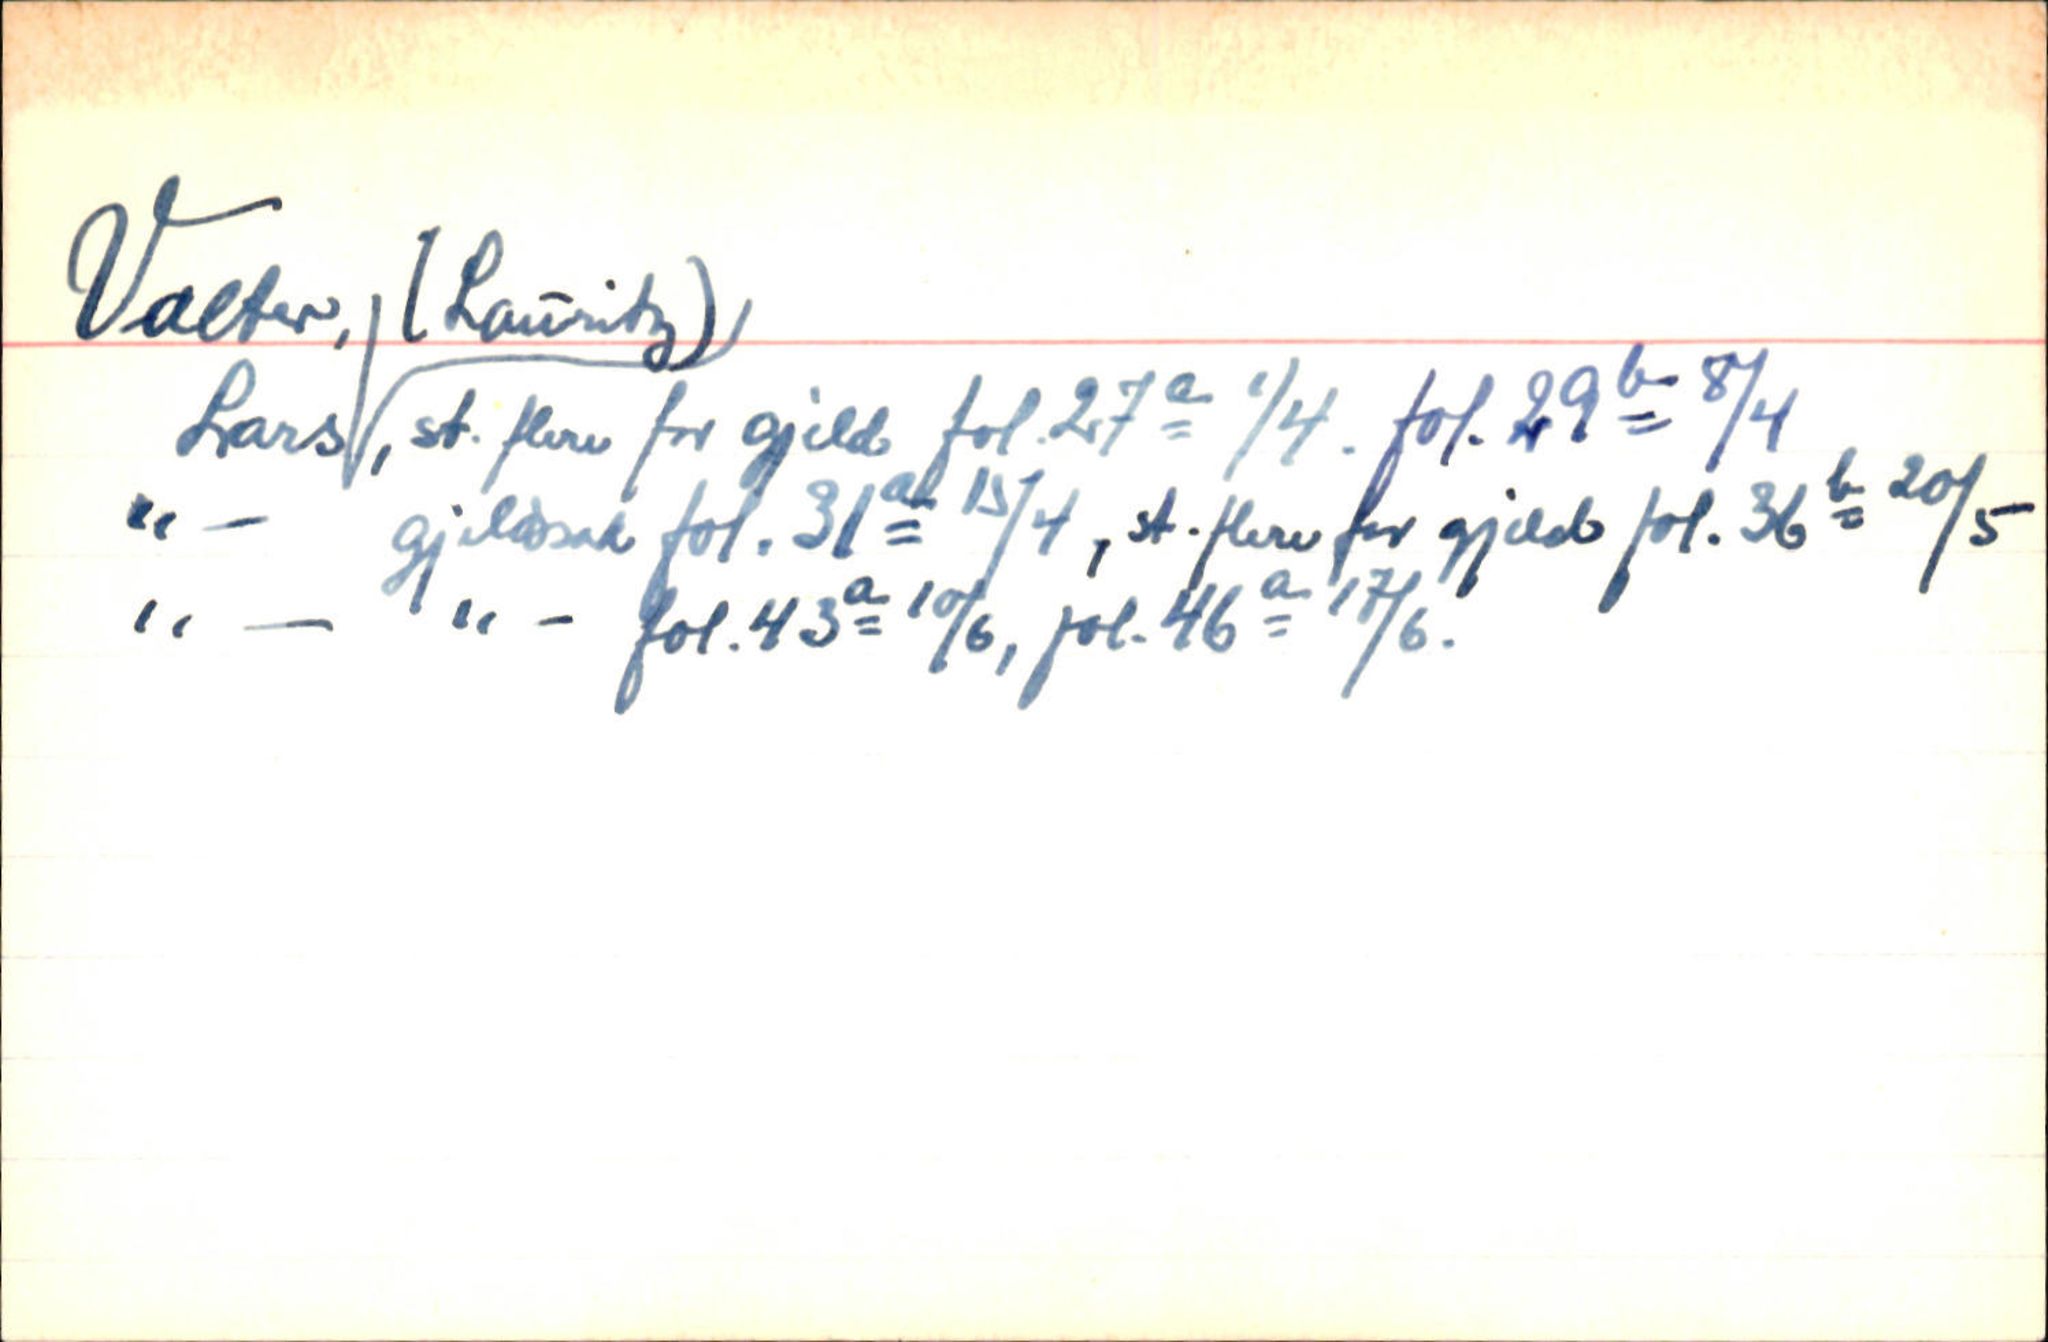 Valter, (Lauritz)
Lars, st. flere for gjeld fol. 27a 1/4. fol. 29b 8/4
" — gjeldssak fol. 31a 15/4, st. flere for gjeld fol. 36b 20/5
" — " — fol. 43a 10/6, fol. 46a 17/6.